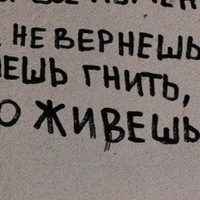 НЕ ВЕРНЕШЬ
ЕШЬ ГНИТЬ,
О ЖИВЕШЬ